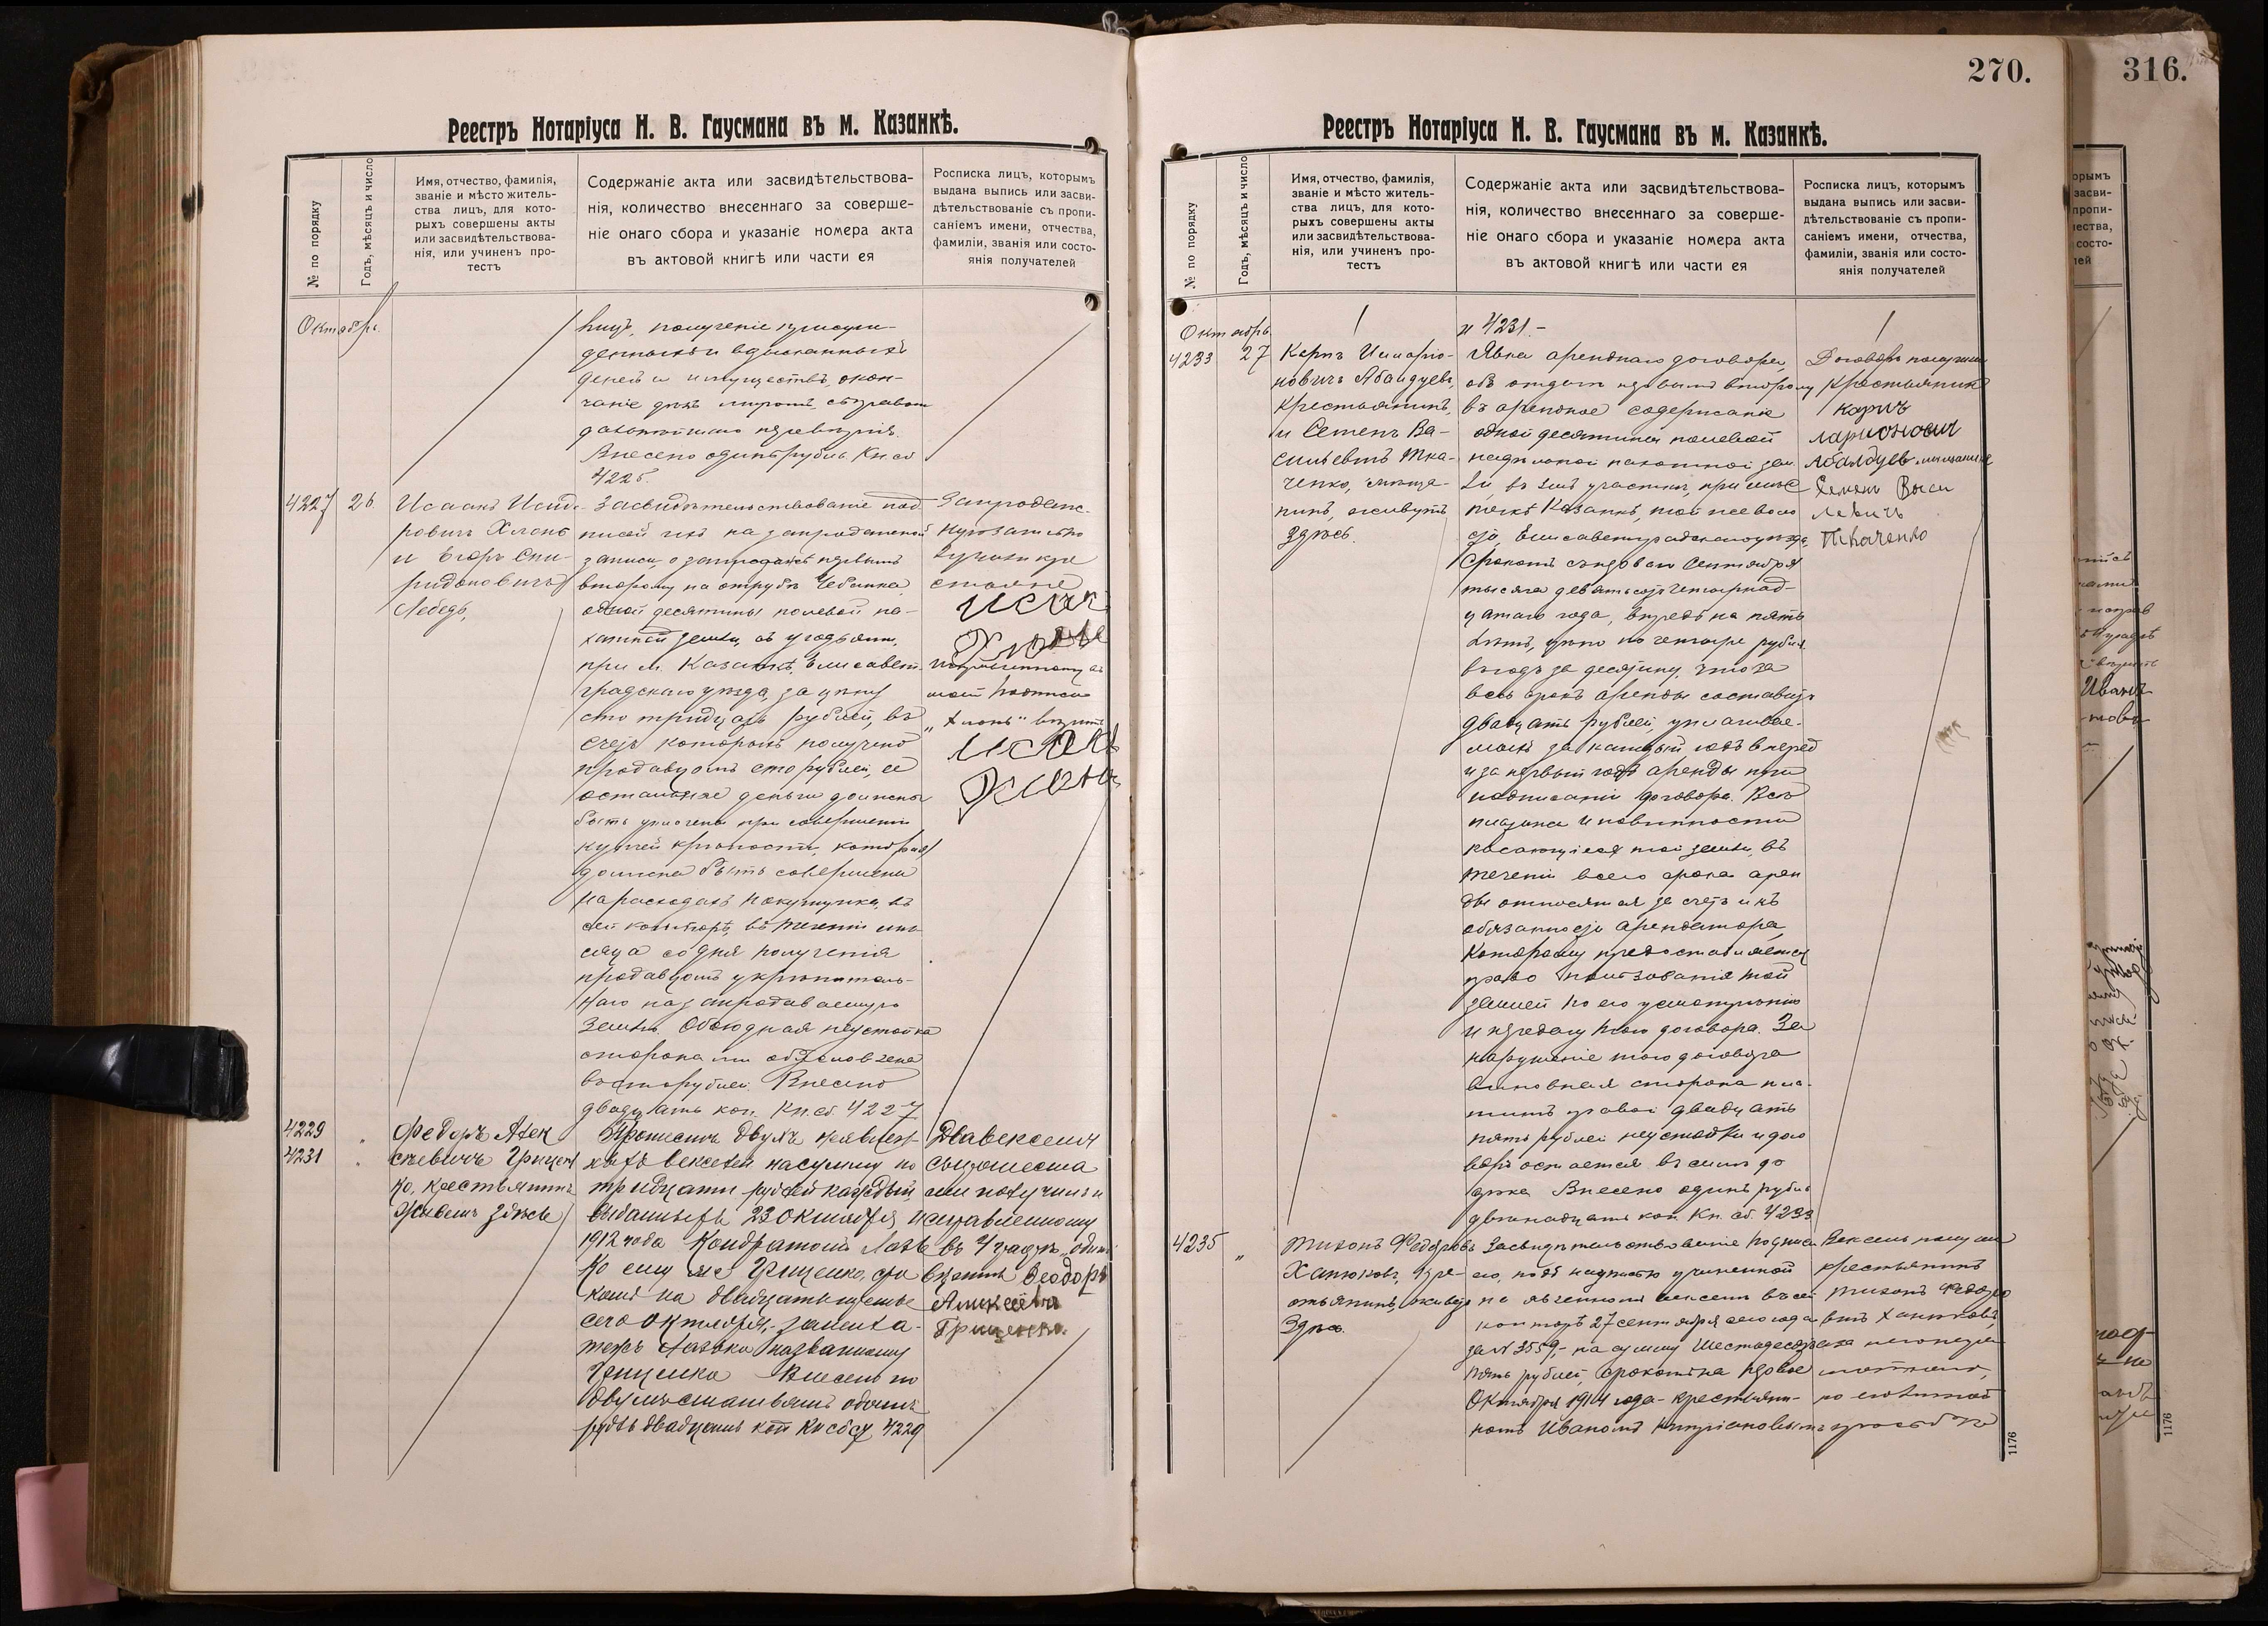 270.
316.
Реестръ Нотаріуса Н. В. Гаусмана въ м. Казанкѣ.
№ по порядку
Годъ, мѣсяцъ и число
Имя, отчество, фамилія,
званіе и мѣсто житель-
ства лицъ, для кото-
рыхъ совершены акты
или засвидѣтельствова-
нія, или учиненъ про-
тестъ
Содержаніе акта или засвидѣтельствова-
нія, количество внесеннаго за соверше-
ніе онаго сбора и указаніе номера акта
въ актовой книгѣ или части ея
Росписка лицъ, которымъ
выдана выпись или засви-
дѣтельствованіе съ пропи-
саніемъ имени, отчества,
фамиліи, званія или состо-
янія получателей
Октябрь.
лицъ, полученіе присуж-
денныхъ и взысканныхъ
денегъ и имуществъ, окон-
чаніе дѣлъ миромъ, съ правом
дальнѣйшаго передовѣрія.
Внесено одинъ рубль Кн. сб
4225.
4227
26
Исаакъ Исидо-
ровичъ Хлонь
и Егоръ Спи-
ридоновичъ
Лебедь,
Засвидѣтельствованіе под-
писей ихъ на запродажной
записи, о запродажѣ первымъ
второму на отрубѣ Чебанка,
одной десятины полевой па-
хатной земли, съ угодьями,
при м. Казанкѣ, Елисавет-
градскаго уѣзда, за цѣну
сто тридцать рублей, въ
счетъ которыхъ получено
продавцомъ сто рублей, а
остальные деньги должны
быть уплочены при совершеніи
купчей крѣпости, которая
должна быть совершена
на расходахъ покупщика, въ
сей конторѣ, въ теченіи мѣ-
сяца со дня полученія
продавцомъ укрѣпитель-
наго на запродаваемую
землю. Обоюдная неустойка
сторонами обусловлена
въ сто рублей. Внесено
двадцать коп. Кн. сб. 4227
Исакъ
Исакъ
4229
4231
Федоръ Алек
сѣевичъ Грицен
ко, крестьянинъ
живетъ здѣсь
Протестъ двухъ
векселей на сумму по
тридцати рублей каждый
выданныхъ 23 октября
1912 года Кондратомъ
ко ему же Грищенко, сро
комъ на двадцать третье
сего октября,- за непла-
тежъ названному
Грищенко Внесено по
двумъ статьямъ одинъ
рубль двадцать коп Кн сб сд 4229
Два векселя
съ протеста
ми получилъ
исправленному
въ 4 графѣ „один“
вѣрить Ѳеодоръ
Алексѣевъ
Грищенко.
Реестръ Нотаріуса Н. В. Гаусмана въ м. Казанкѣ.
№ по порядку
Годъ, мѣсяцъ и число
Имя, отчество, фамилія,
званіе и мѣсто житель-
ства лицъ, для кото-
рыхъ совершены акты
или засвидѣтельствова-
нія, или учиненъ про-
тестъ
Содержаніе акта или засвидѣтельствова-
нія, количество внесеннаго за соверше-
ніе онаго сбора и указаніе номера акта
въ актовой книгѣ или части ея
Росписка лицъ, которымъ
выдана выпись или засви-
дѣтельствованіе съ пропи-
саніемъ имени, отчества,
фамиліи, званія или состо-
янія получателей
Октябрь.
и 4231.-
4233
27
Карпъ Илларіо-
новичъ Абалдуевъ,
крестьянинъ,
и Семенъ Ва-
сильевичъ Тка-
ченко, мѣща-
нинъ, живутъ
здѣсь.
Явка аренднаго договора,
объ отдачѣ первымъ второму
въ арендное содержаніе
одной десятины полевой
надѣльной пахотной зем
ли, въ участкѣ, при мѣс
течкѣ Казанкѣ, той же воло
сти, Елисаветградскаго уѣзда,
срокомъ съ перваго Сентября
тысяча девятьсотъ четырнад-
цатаго года, впредь на пять
лѣтъ, цѣною по четыре рубля
въ годъ за десятину, что за
весь срокъ аренды составитъ
двадцать рублей, уплачивае-
мыхъ за каждый годъ впередъ
и за первый годъ аренды при
подписаніи договора. Всѣ
платежи и повинности
касающіеся той земли, въ
теченіи всего срока арен
ды относятся за счетъ и къ
обязанности арендатора,
которому предоставляется
право пользованія той
землей по его усмотрѣнію
и передачи того договора. За
нарушеніе того договора
виновная сторона пла-
титъ правой двадцать
пять рублей неустойки и дого
воръ остается въ силѣ до
срока Внесено одинъ рубль
двѣнадцать коп. Кн. сб. 4233
Договоръ получили
крестьянинъ
карпъ
ларионович
Абалдуев мѣщанинъ
Семенъ Васи
левичъ
Ткаченко
4235
„
Тихонъ Федоровъ
Ханюковъ, кре-
стьянинъ, живетъ
здѣсь.
Засвидѣтельствованіе подписи
его, подъ надписью учиненной
на явленномъ векселѣ въ сей
конторѣ 27 сентября сего года
за № 3559,- на сумму Шестьдесятъ
пять рублей, срокомъ на первое
Октября 1914 года - крестьяни-
номъ Иваномъ
Вексель получилъ
крестьянинъ
Тихонъ Федоро
вичъ Ханюковъ,
а неграмотный,
по личной
просьбѣ
1176
1176